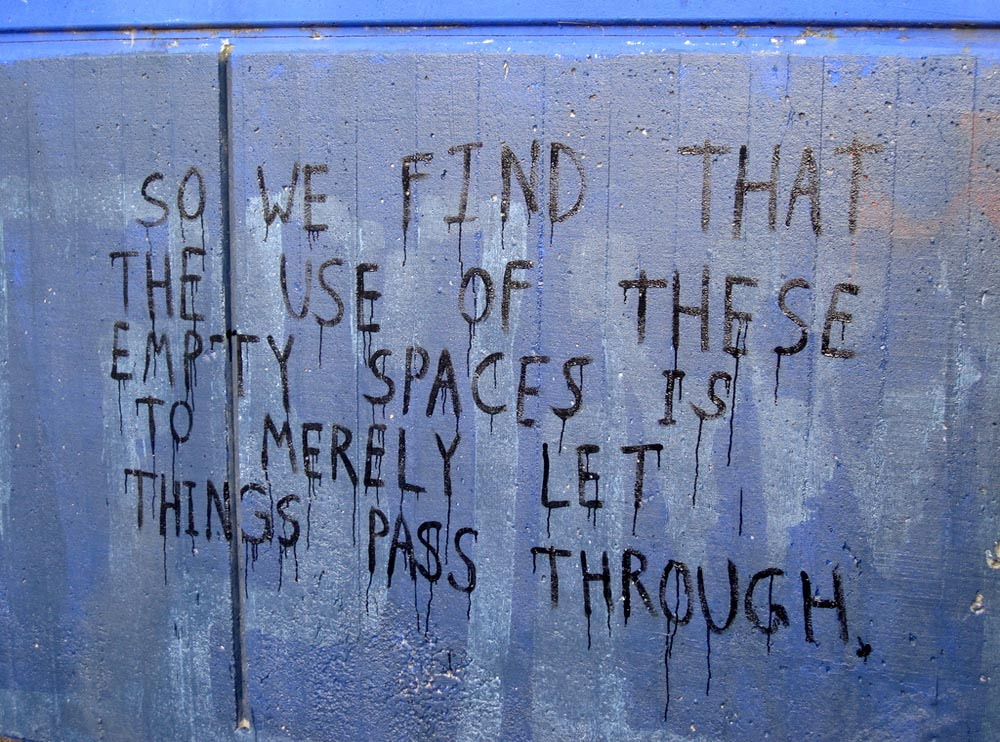 SO WE FIND THAT
THE USE OF THESE
EMPTY SPACES IS
TO MERELY LET
THINGS PASS THROUGH.